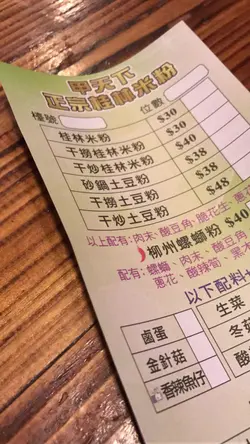 甲天下
正宗桂林米粉
檯號 位數
桂林米粉 $30
干撈桂林米粉 $30
干炒桂林米粉 $40
砂鍋土豆粉 $38
干撈土豆粉 $38
干炒土豆粉 $48
以上配有:肉末、酸豆角、脆花生、蔥
柳州螺螄粉 $40
配有:螺螄、肉末、酸豆
蔥花、酸辣筍、黑
以下配料
鹵蛋 生菜
金針菇 冬菇
香辣魚仔 酸